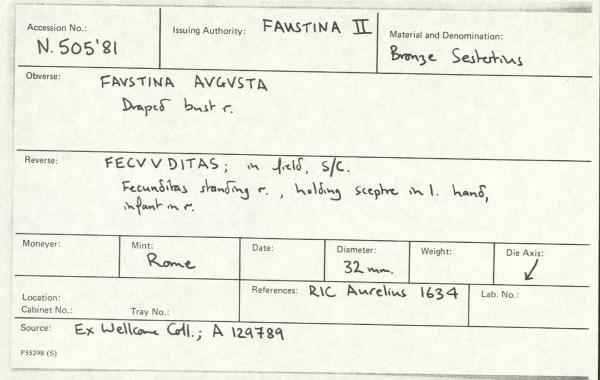 Accession No.: N.505'81
Issuing Authority: FAUSTINA II
Material and Denomination: Bronze Sestertius
Obverse: FAVSTINA AVGVSTA
Draped bust r.
Reverse: FECVVDITAS; in field, S/C.
Fecunditas standing r., holding sceptre in l. hand,
infant in r.
Moneyer:
Mint: Rome
Date:
Diameter: 32 mm.
Weight:
Die Axis: ↙
Location:
Cabinet No.: Tray No.:
References: RIC Aurelius 1634
Lab. No.:
Source: Ex Wellcome Coll.; A 129789
P35298 (S)